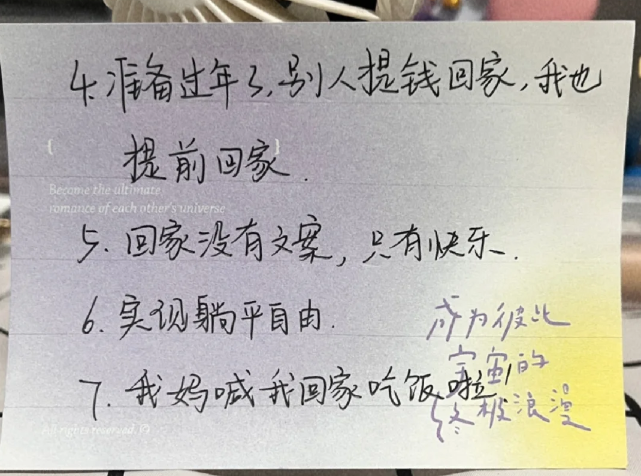 4.准备过年了,别人提钱回家,我也
提前回家.
Become the ultimate
romance of each other's universe
5.回家没有文案,只有快乐.
6.实现躺平自由.
7.我妈喊我回家吃饭啦,
成为彼此
宇宙的
终极浪漫
All rights reserved.